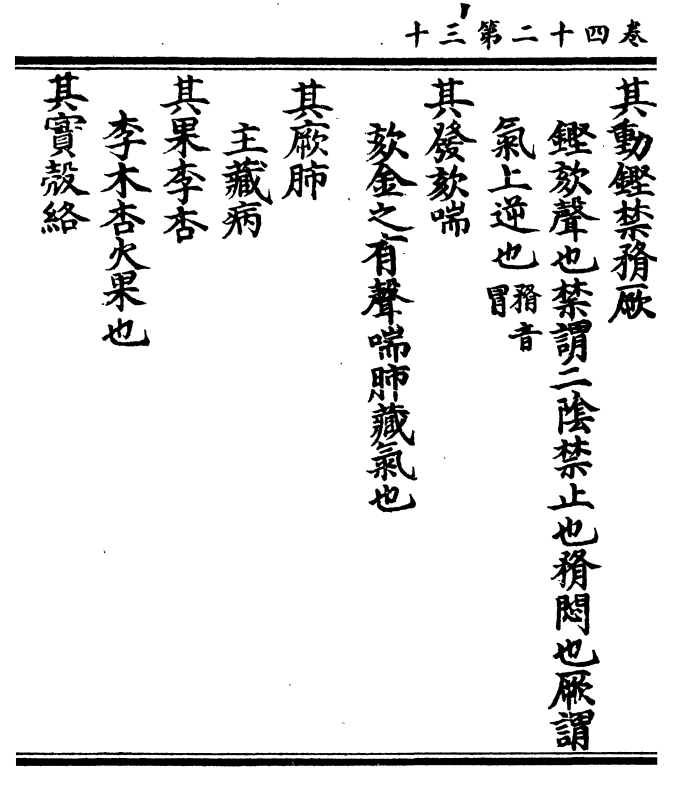 卷四十二第三十
其動鏗禁瞀厥
鏗欬聲也禁謂二陰禁止也瞀悶也厥謂
氣上逆也瞀音冒
其發欬喘
欬金之有聲喘肺藏氣也
其厥肺
主藏病
其果李杏
李木杏火果也
其實殼絡